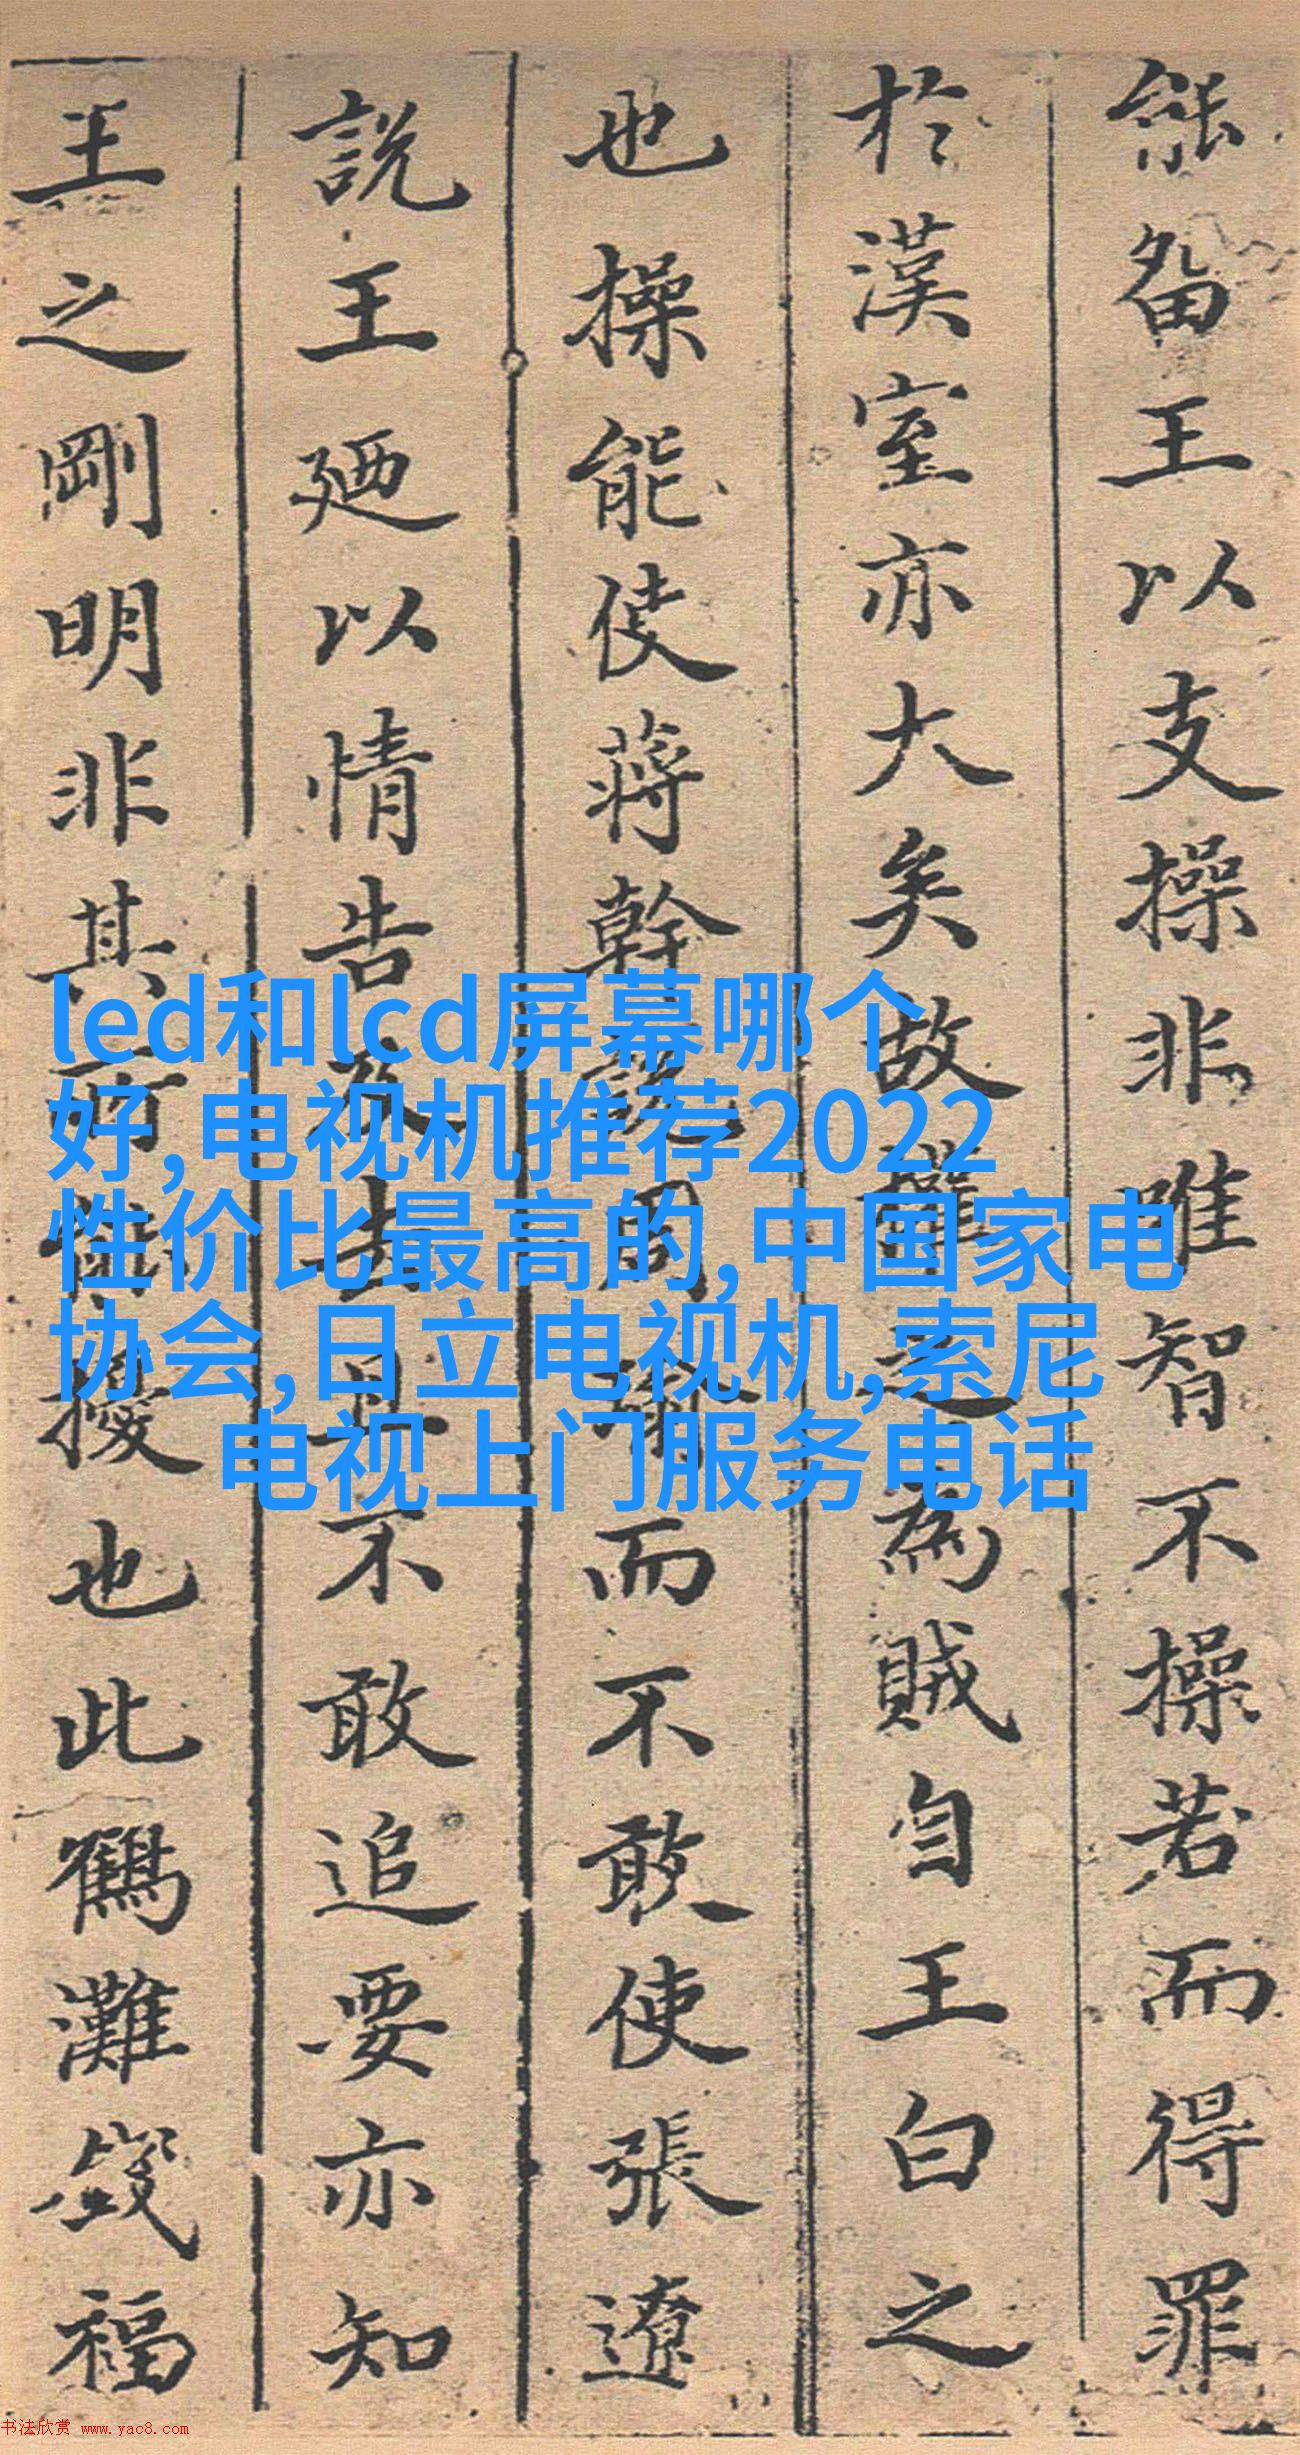 能留王以支操非唯智不操若而得罪
於漢室亦大矣故權之為賊自王白之
也操能使蔣幹說周瑜而不敢使張遼
說王廼以情告及去且不敢追要亦知
王之剛明非其所能擾也此鶴灘錢福
led和lcd屏幕哪个
好,电视机推荐2022
性价比最高的,中国家电
协会,日立电视机,索尼
电视上门服务电话
书法欣赏 www.yac8.com